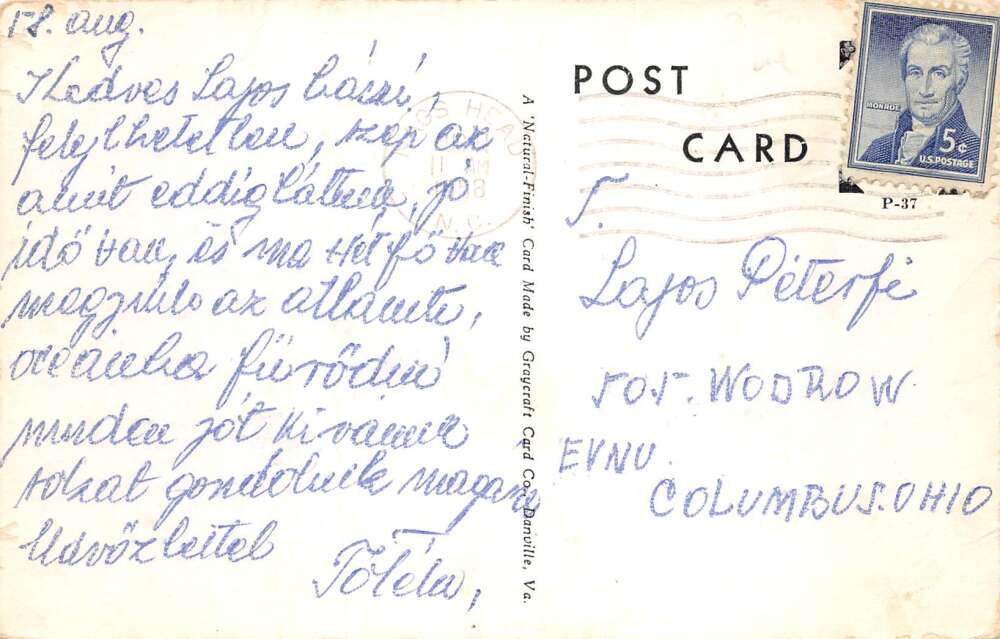 58. aug.
Kedves Lajos bácsi,
felejthetetlen, szép az
amit eddig láttunk, jó
idő van, és ma Hétfő van
megyünk az atlanti,
oceánba fürödni
minden jót kivánunk
sokat gondolunk magára
Üdvözlettel
POST
CARD
A 'Natural-Finish' Card Made by Graycraft Card Co., Danville, Va.
HEAD
N.C.
MONROE
5¢
U.S. POSTAGE
P-37
Lajos Péterfi
505. WODROW
EVNU.
COLUMBUS. OHIO